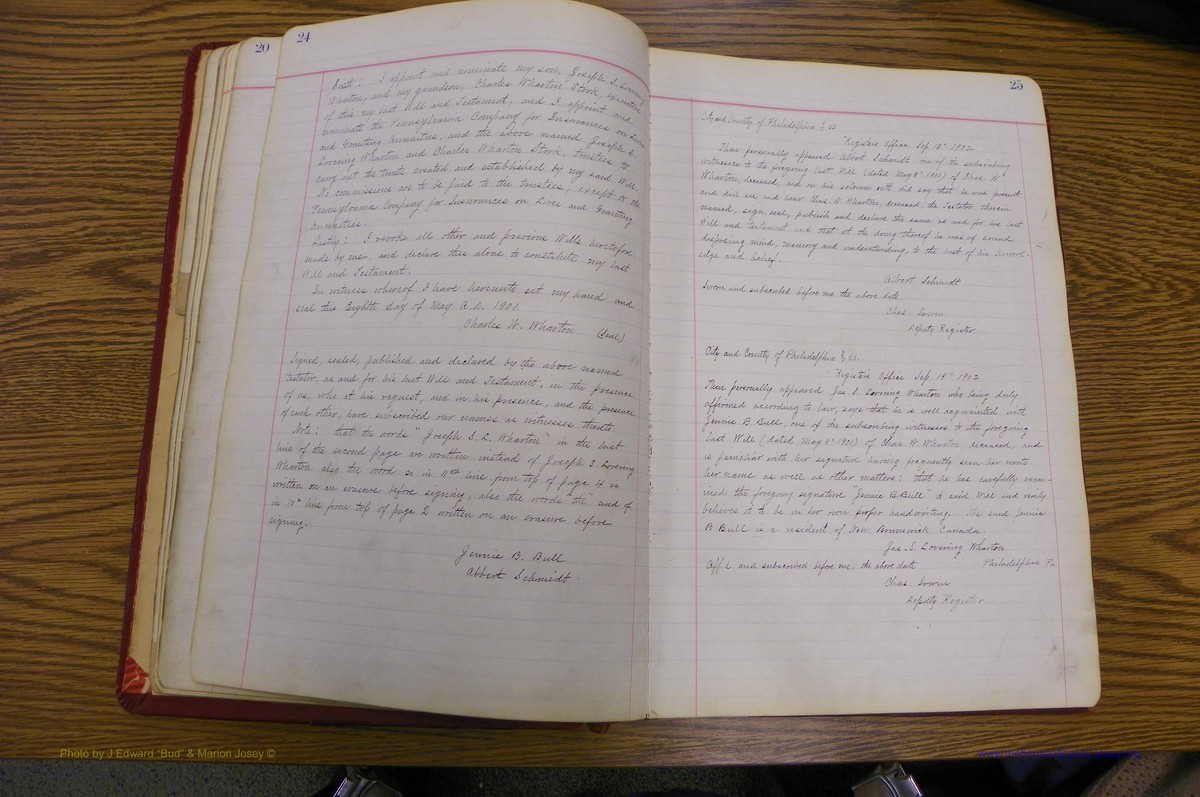 20
24
Sixth: I appoint and nominate my son, Joseph S. Lovering
Wharton, and my grandson, Charles Wharton Stork, executors
of this my last Will and Testament, and I appoint and
nominate the Pennsylvania Company for Insurances on Lives
and Granting Annuities, and the above named Joseph S.
Lovering Wharton and Charles Wharton Stork, trustees to
carry out the trusts created and established by my said Will.
No commissions are to be paid to the trustees, except to the
Pennsylvania Company for Insurances on Lives and Granting
Annuities.
Lastly: I revoke all other and previous Wills heretofore
made by me, and declare this alone to constitute my last
Will and Testament.
In witness whereof I have hereunto set my hand and
seal this Eighth day of May A.D. 1901.
Charles W. Wharton (Seal)
Signed, sealed, published and declared by the above named
testator, as and for his last Will and Testament, in the presence
of us, who at his request, and in his presence, and the presence
of each other, have subscribed our names as witnesses thereto.
Note: that the words "Joseph S. L. Wharton" in the last
line of the second page are written instead of Joseph S. Lovering
Wharton also the word so in 11th line from top of page 4 is
written on an erasure before signing, also the words "the" and of
in 10th line from top of page 2 written on an erasure before
signing.
Jennie B. Bull
Albert Schmidt
25
City and County of Philadelphia } ss.
Register's Office Sep. 18th 1902
Then personally appeared Albert Schmidt one of the subscribing
witnesses to the foregoing last Will (dated May 8th 1901) of Chas. W.
Wharton, deceased, and on his solemn oath did say that he was present
and did see and hear Chas. W. Wharton, deceased, the Testator therein
named, sign, seal, publish and declare the same as and for his last
Will and Testament and that at the doing thereof he was of sound
disposing mind, memory and understanding, to the best of his knowl-
edge and belief.
Albert Schmidt
Sworn and subscribed before me the above date.
Chas. Irwin
Deputy Register
City and County of Philadelphia } ss.
Register's Office Sep. 18th 1902
Then personally appeared Jos. S. Lovering Wharton who being duly
affirmed according to law, says that he is well acquainted with
Jennie B. Bull, one of the subscribing witnesses to the foregoing
last Will (dated May 8th 1901) of Chas. W. Wharton, deceased, and
is familiar with her signature having frequently seen her write
her name as well as other matters: that he has carefully exam-
ined the foregoing signature "Jennie B Bull" to said Will and verily
believes it to be in her own proper handwriting. The said Jennie
B. Bull is a resident of New Brunswick, Canada.
Jos. S. Lovering Wharton
Philadelphia Pa.
Aff'd and subscribed before me, the above date
Chas. Irwin
Deputy Register
Photo by J Edward "Bud" & Marion Josey ©